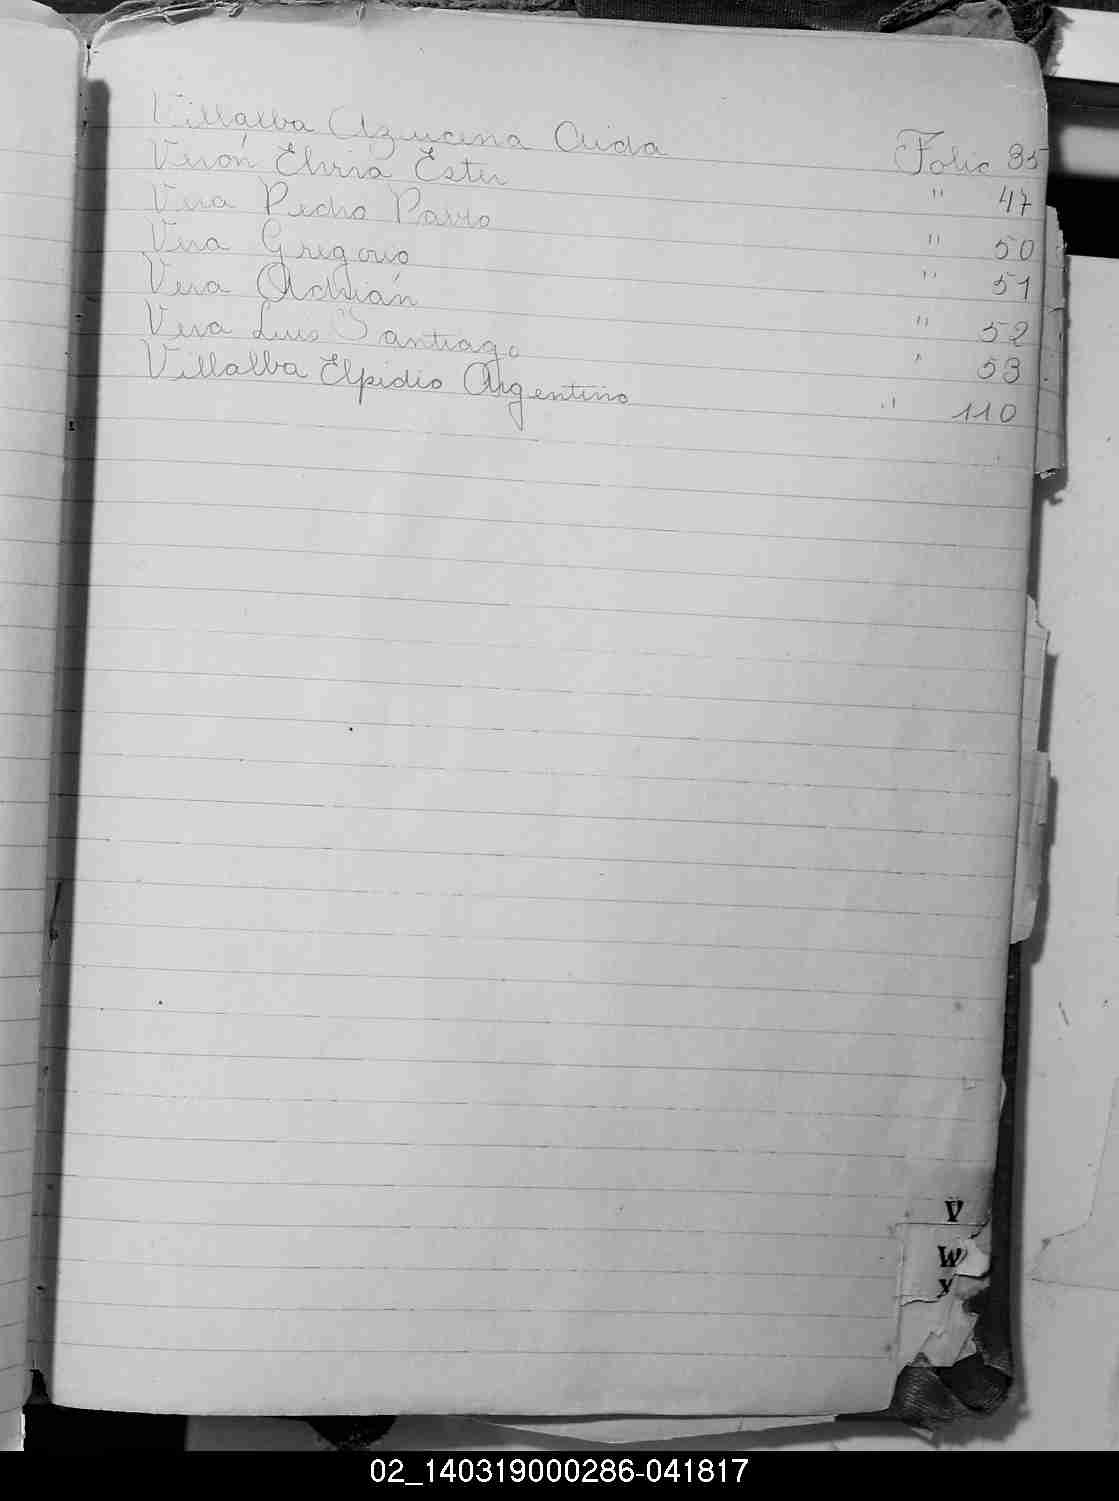 Villalba Azucena Aida Folio 35
Verón Elvira Ester " 47
Vera Pedro Pablo " 50
Vera Gregorio " 51
Vera Adrián " 52
Vera Luis Santiago " 53
Villalba Elpidio Argentino " 110
V
W
X
02_140319000286-041817